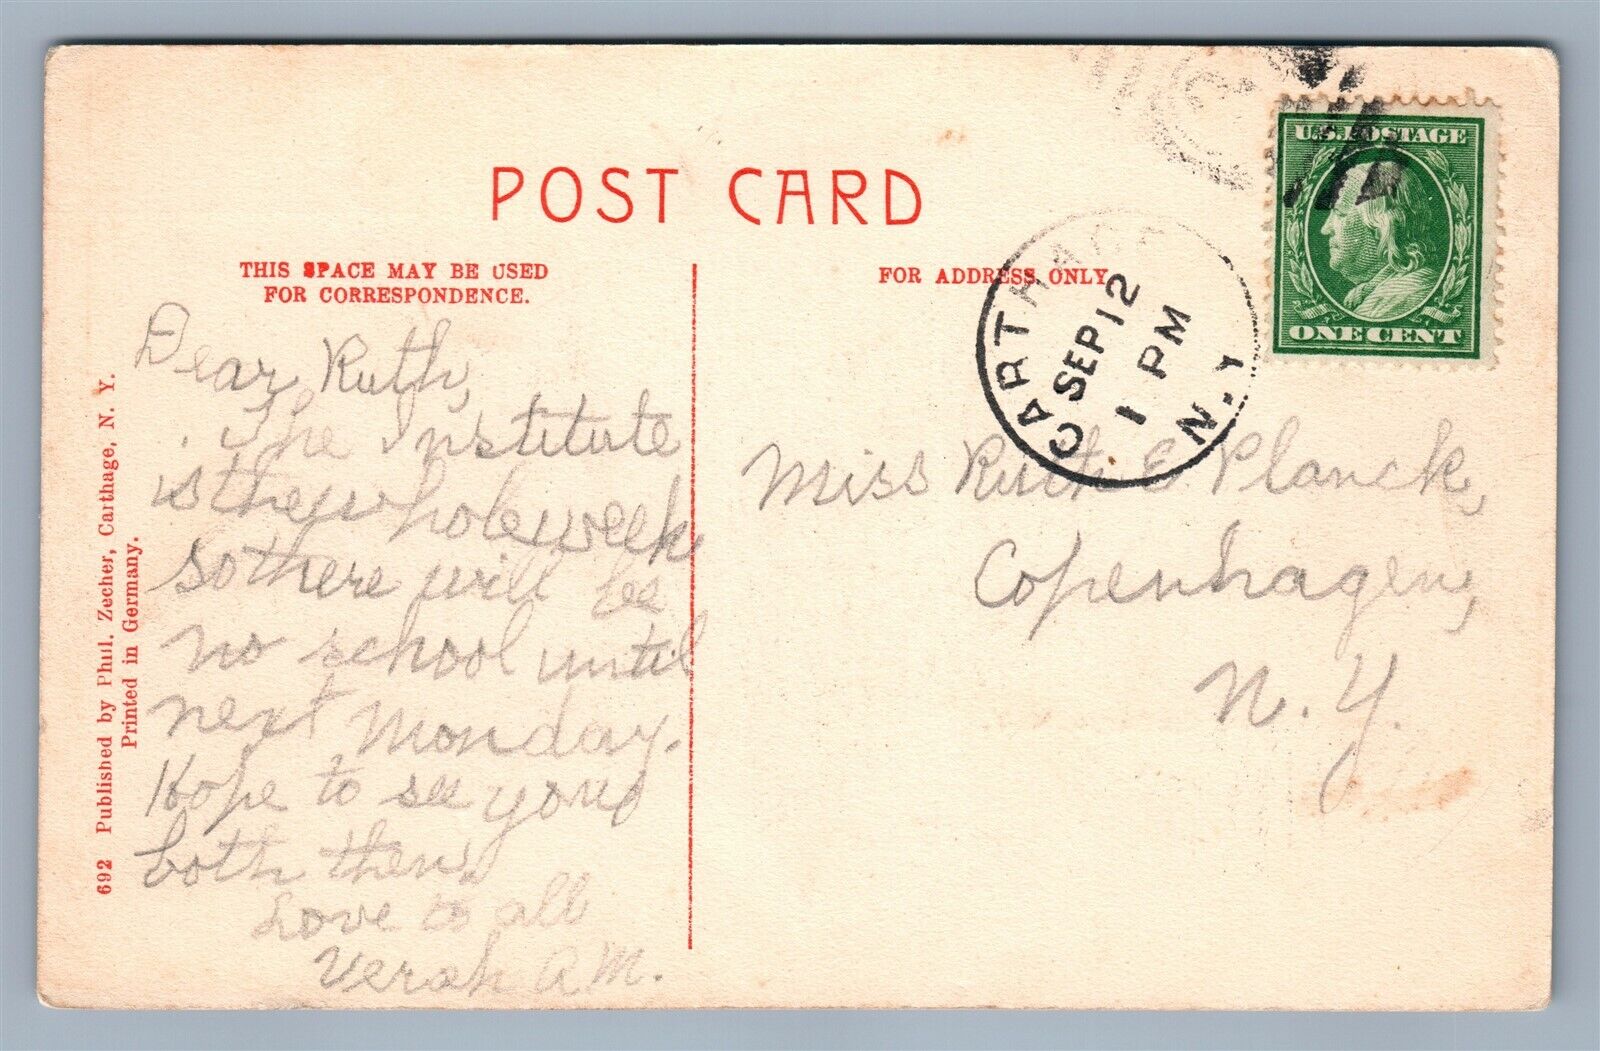 POST CARD
THIS SPACE MAY BE USED
FOR CORRESPONDENCE.
FOR ADDRESS ONLY
U.S. POSTAGE
ONE CENT
CARTHAGE
SEP 12
1 PM
N.Y.
Dear Ruth,
The Institute
is the whole week
so there will be
no school until
next Monday.
Hope to see you
both then.
Love to all
Verah A M.
Miss Ruth E Planck,
Copenhagen,
N. Y.
692 Published by Phil. Zecher, Carthage, N. Y.
Printed in Germany.